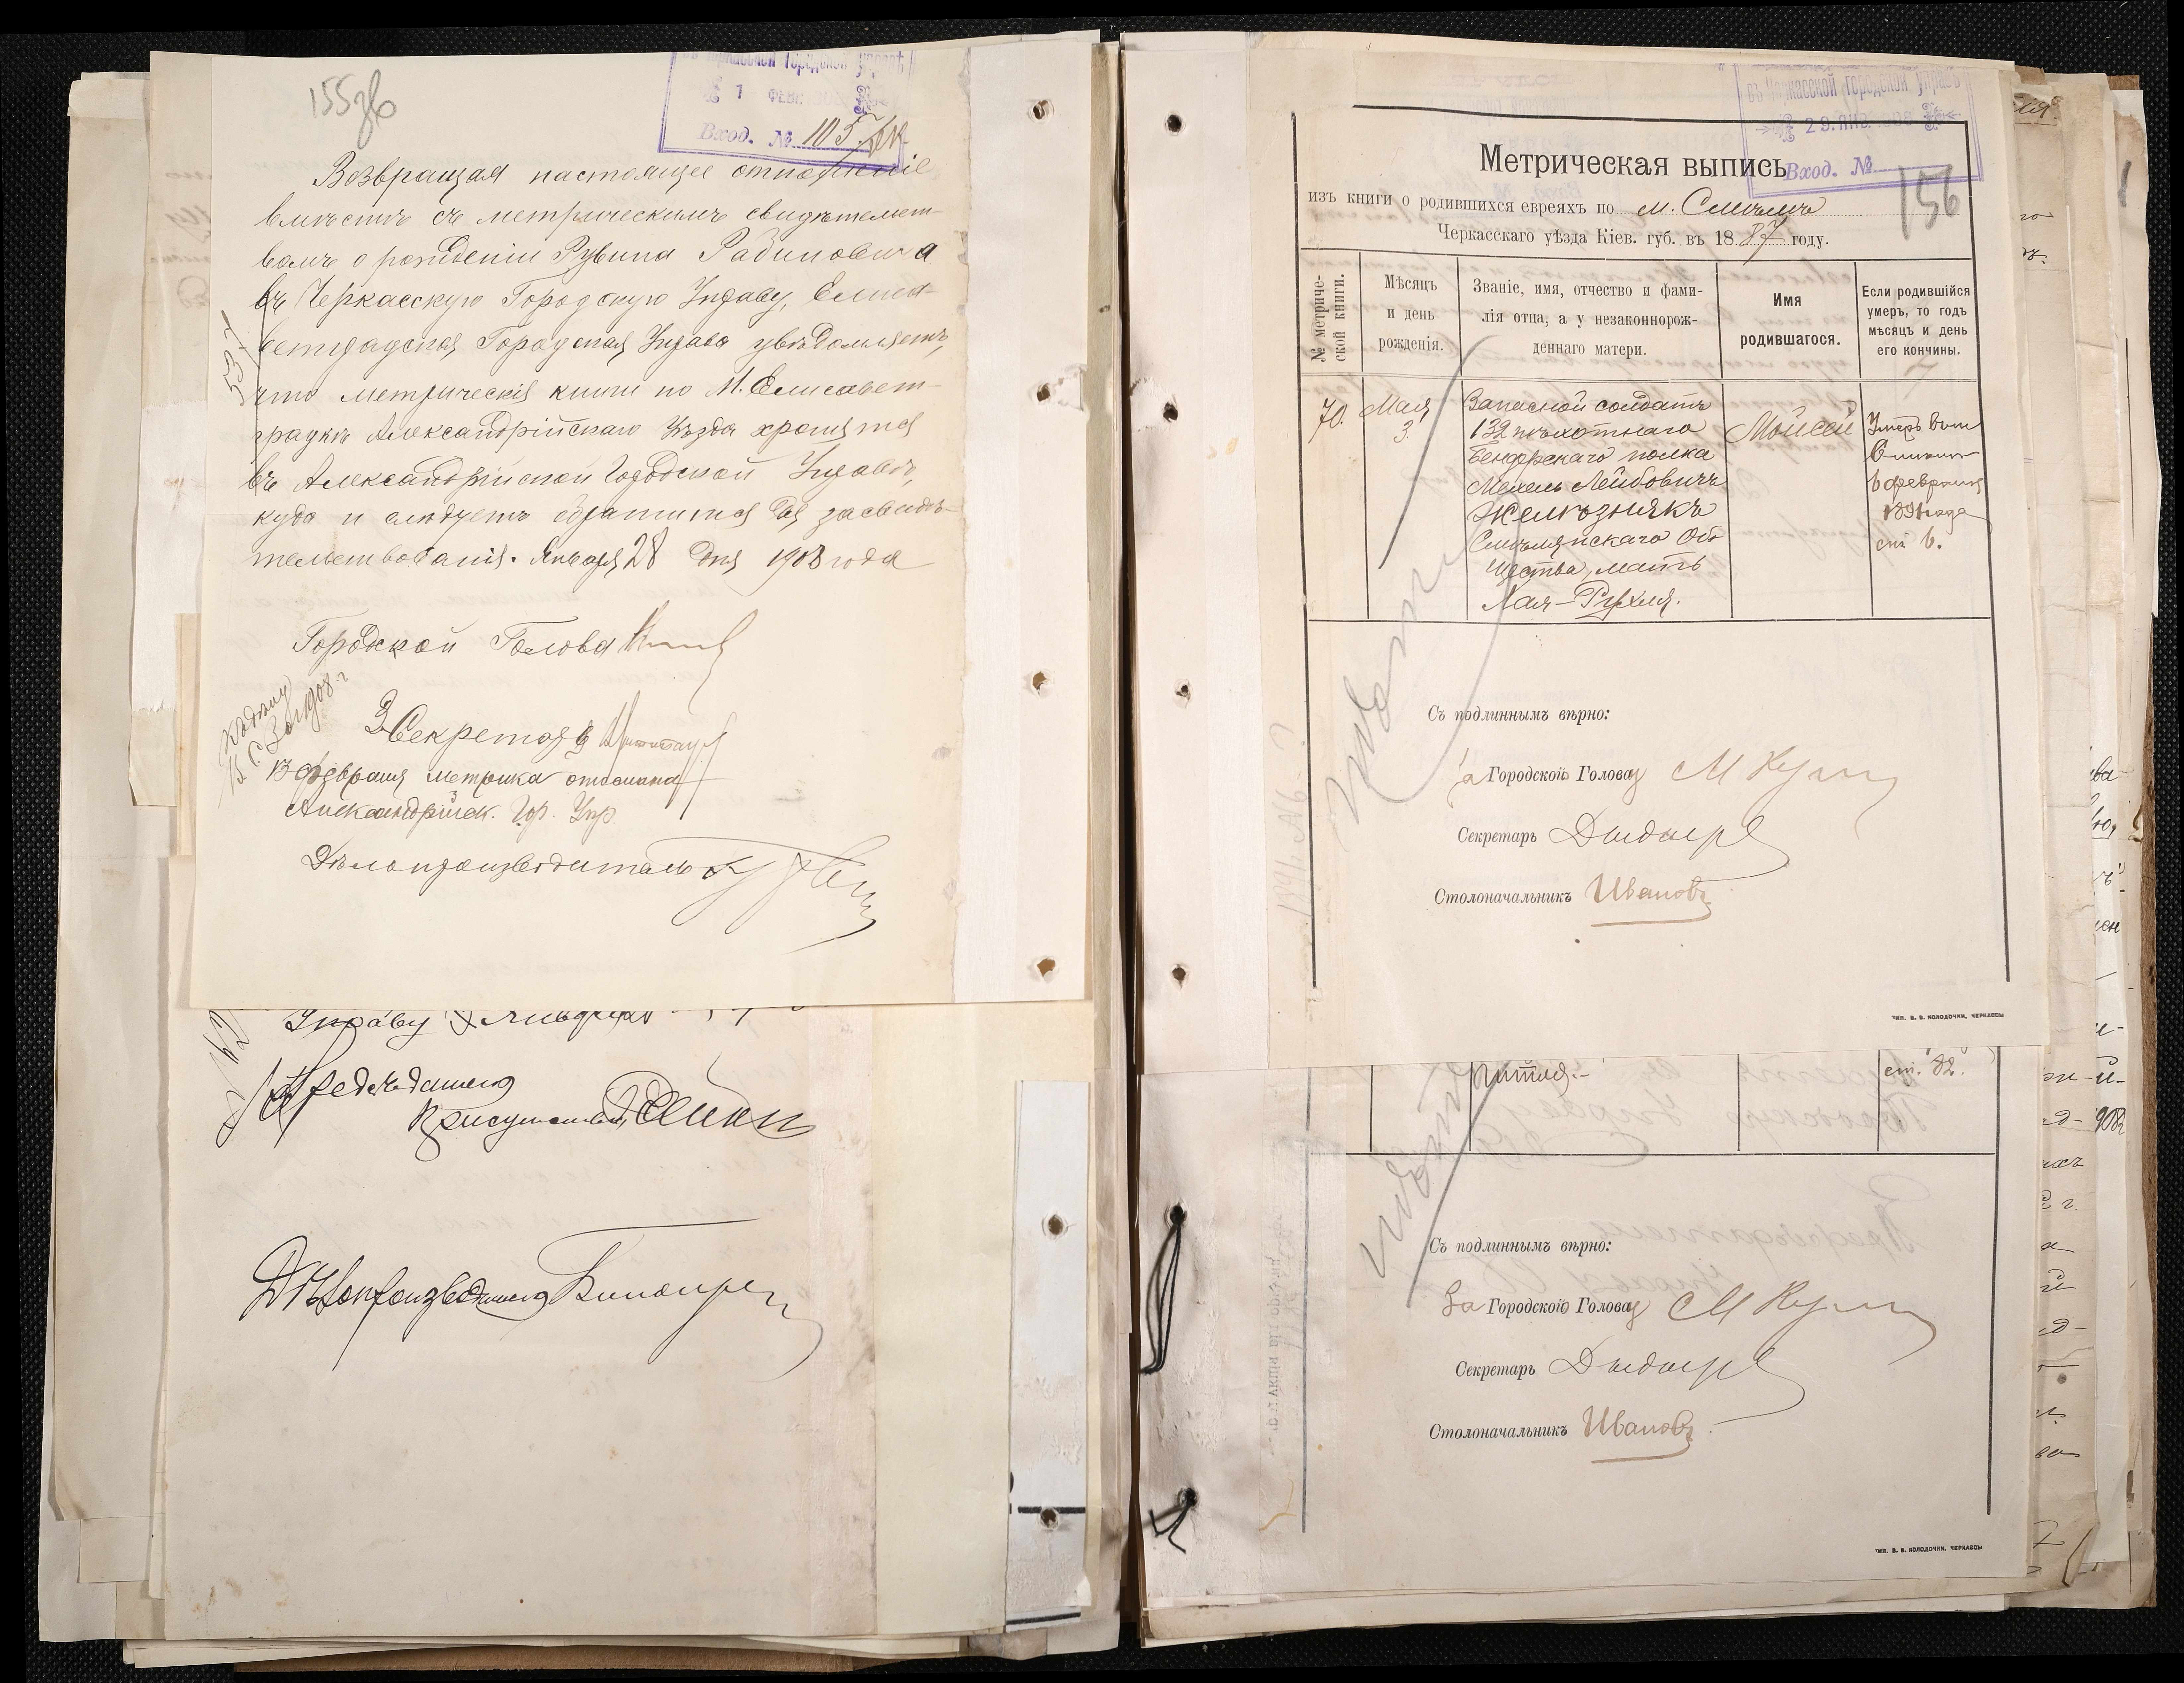 155 зв
въ Черкасской городской управѣ
1 ФЕВР. 1908
Вход. № 105
Возвращая настоящее отношеніе
вмѣстѣ съ метрическимъ свидѣтельст-
вомъ о рожденіи Рувина Рабиновича
въ Черкасскую Городскую Управу, Елиса-
ветградская Городская Управа увѣдомляетъ,
что метрическія книги по М. Елисавет-
градкѣ Александрійскаго Уѣзда хранятся
въ Александрійской Городской Управѣ,
куда и слѣдуетъ обратится для засвидѣ-
тельствованія. Января 28 дня 1908 года
537
Городской Голова
Секретарь
Къ дѣлу
1908 г
13 Февраля метрика отослана
Александрійск. Гор. Упр.
Дѣлопроизводитель
Управу
Предсѣдатель
Присутствія
Дѣлопроизводитель
въ Черкасской городской управѣ
29. ЯНВ. 1908
Вход. №
156
Метрическая выпись
изъ книги о родившихся евреяхъ по м. Смѣлѣ
Черкасскаго уѣзда Кіев. губ. въ 1887 году.
№ метриче-
ской книги.
Мѣсяцъ
и день
рожденія.
Званіе, имя, отчество и фами-
лія отца, а у незаконнорож-
деннаго матери.
Имя
родившагося.
Если родившійся
умеръ, то годъ
мѣсяцъ и день
его кончины.
70.
Мая
3.
Запасной солдатъ
132 пѣхотнаго
Бендерскаго полка
Мехель Лейбовичъ
Желѣзнякъ
Смѣлянскаго Об-
щества, мать
Хая-Рухля.
Мойсей
Умеръ
6 февраля
1891 года
ст. 6.
Съ подлиннымъ вѣрно:
За Городской Голова
Секретарь
Столоначальникъ Ивановъ
ТИП. В. В. КОЛОДОЧКИ, ЧЕРКАССЫ
ст. 82.
Съ подлиннымъ вѣрно:
За Городской Голова
Секретарь
Столоначальникъ Ивановъ
ТИП. В. В. КОЛОДОЧКИ, ЧЕРКАССЫ